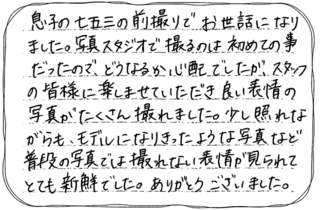 息子の七五三の前撮りで お世話になり
ました。写真スタジオで撮るのは初めての事
だったので、どうなるか心配でしたが、スタッフ
の皆様に楽しませていただき良い表情の
写真がたくさん撮れました。少し照れな
がらも、モデルになりきったような写真など
普段の写真では撮れない表情が見られて
とても新鮮でした。ありがとうございました。